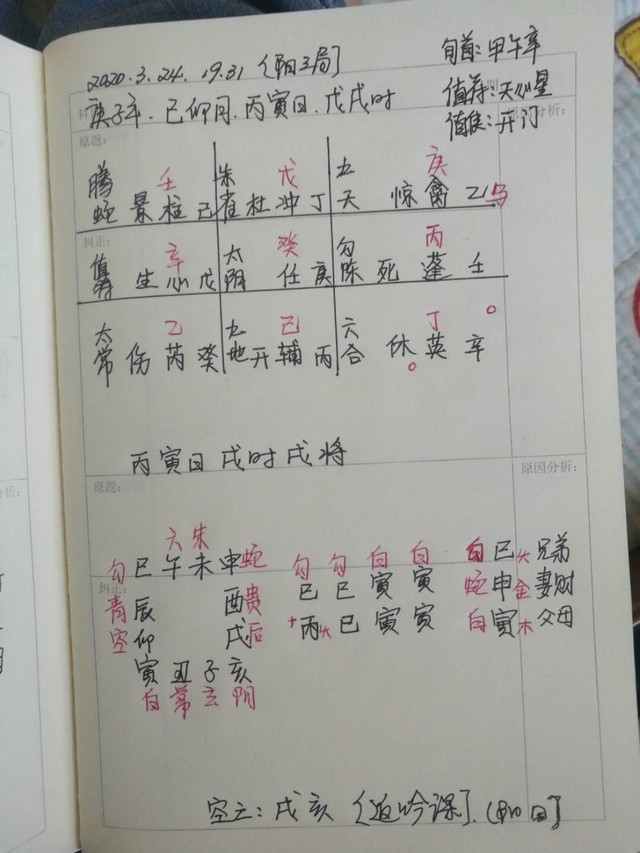 2020.3.24.19:31 (阳3局]
旬首:甲午辛
庚子年.己卯月.丙寅日.戊戌时
值符:天心星
值使:开门
原题:
分析:
壬 戊 庚
腾蛇 景柱己 朱雀 杜冲丁 九天 惊禽乙 马
纠正:
辛 癸 丙
值符 生心戊 太阴 任庚 勾陈 死蓬壬
乙 己 丁
太常 伤芮癸 九地 开辅丙 六合 休英辛
丙寅日戌时戌将
原题:
原因分析:
六朱
勾巳午未申蛇 勾勾白白 白巳火兄弟
纠正:
青辰 酉贵 巳巳寅寅 蛇申金妻财
空卯 戌后 丙火巳寅寅 白寅木父母
寅丑子亥
白常玄阴
空亡:戌亥